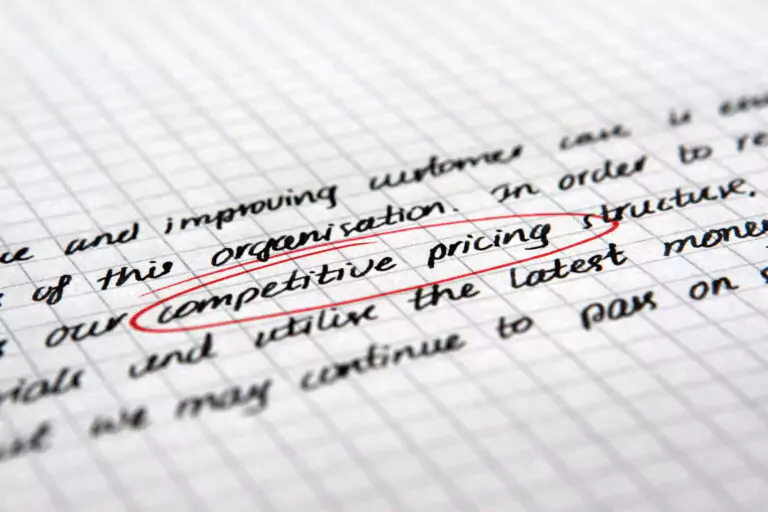 ce and improving customer care is
of this organisation. In order to re
our competitive pricing structure.
rials and utilise the latest money
we may continue to pass on s